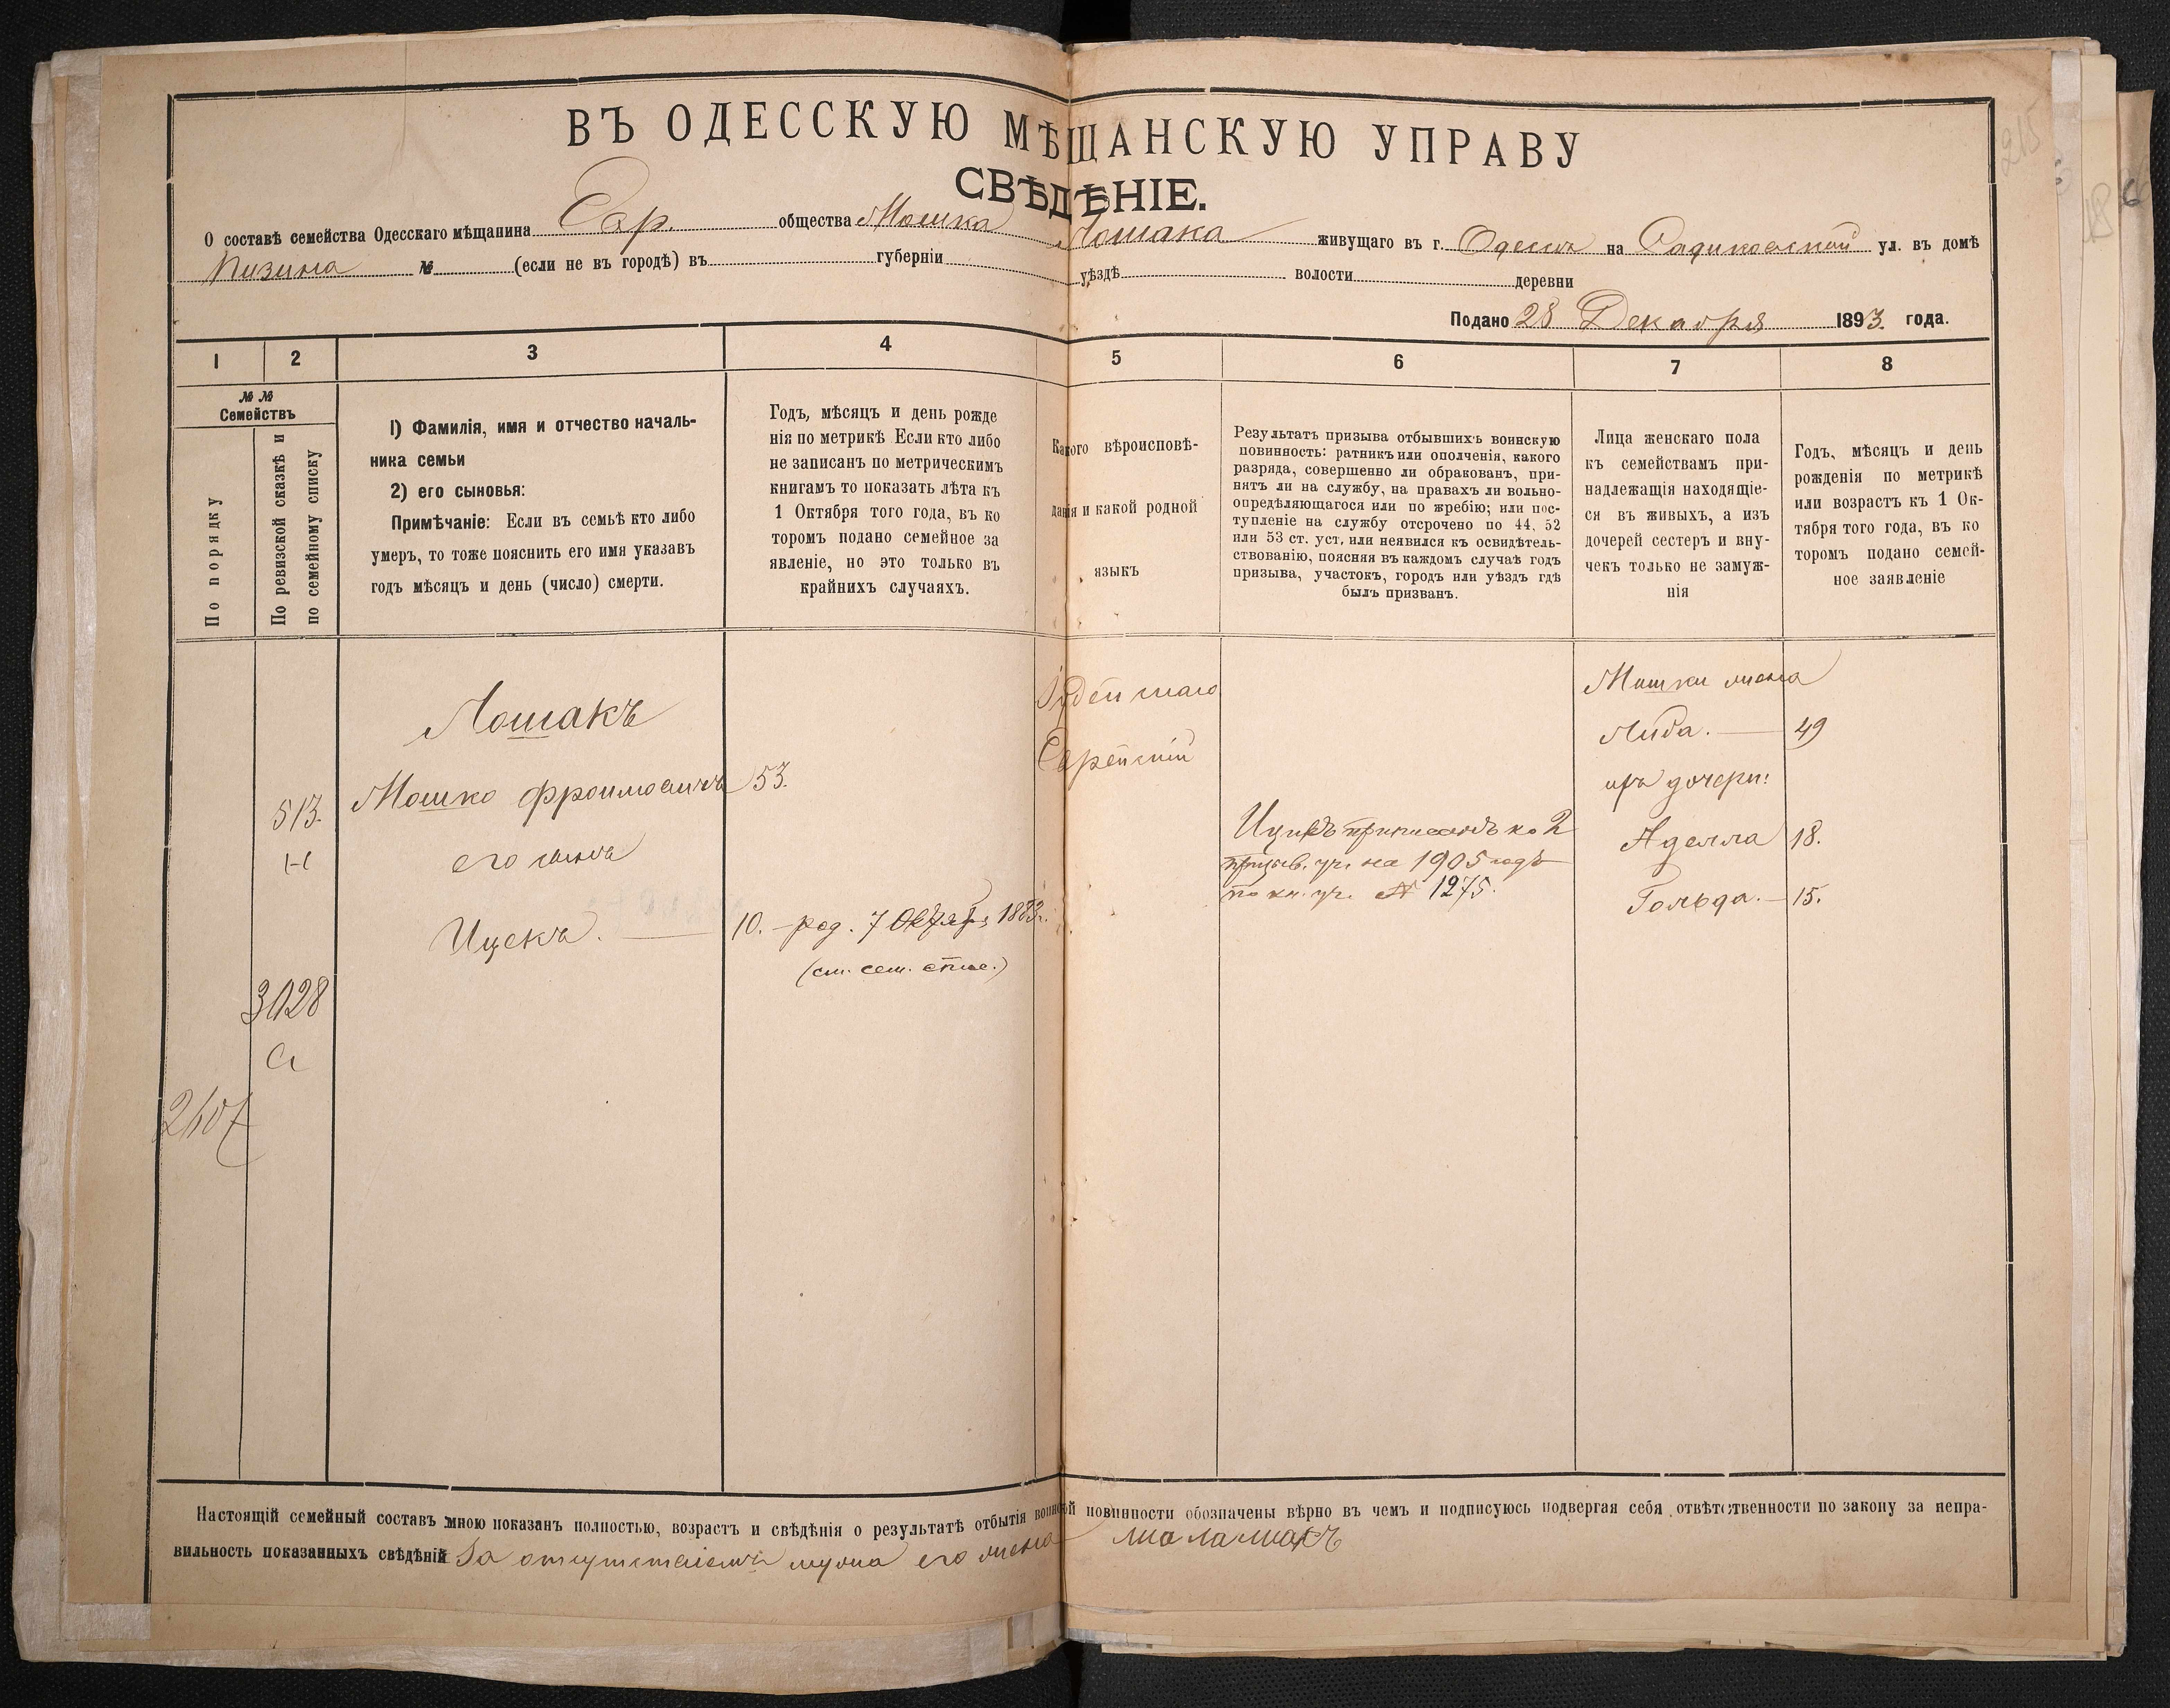 ВЪ ОДЕССКУЮ МѢЩАНСКУЮ УПРАВУ
СВѢДѢНІЕ.
О составѣ семейства Одесскаго мѣщанина Евр. общества Мошка Лошака живущаго въ г. Одессѣ на ул. въ домѣ
Кизина № (если не въ городѣ) въ губерніи уѣздѣ волости деревни
Подано 28 Декабря 1893. года.
1 2 3 4 5 6 7 8
№ №
Семействъ
По порядку
По ревизской сказкѣ и
по семейному списку
1) Фамилія, имя и отчество началь-
ника семьи
2) его сыновья:
Примѣчаніе: Если въ семьѣ кто либо
умеръ, то тоже пояснить его имя указавъ
годъ мѣсяцъ и день (число) смерти.
Годъ, мѣсяцъ и день рожде
нія по метрикѣ Если кто либо
не записанъ по метрическимъ
книгамъ то показать лѣта къ
1 Октября того года, въ ко
торомъ подано семейное за
явленіе, но это только въ
крайнихъ случаяхъ.
Какого вѣроисповѣ-
данія и какой родной
языкъ
Результатъ призыва отбывшихъ воинскую
повинность: ратникъ или ополченія, какого
разряда, совершенно ли обракованъ, при-
нятъ ли на службу, на правахъ ли вольно-
опредѣляющагося или по жребію; или пос-
тупленіе на службу отсрочено по 44, 52
или 53 ст. уст, или неявился къ освидѣтель-
ствованію, поясняя въ каждомъ случаѣ годъ
призыва, участокъ, городъ или уѣздъ гдѣ
былъ призванъ.
Лица женскаго пола
къ семействамъ при-
надлежащія находящіе-
ся въ живыхъ, а изъ
дочерей сестеръ и вну-
чекъ только не замуж-
нія
Годъ, мѣсяцъ и день
рожденія по метрикѣ
или возрастъ къ 1 Ок-
тября того года, въ ко
торомъ подано семей-
ное заявленіе
Лошакъ
513. Мошко Фроимовичъ 53.
Н
его сынъ
Ицекъ. 10. – род. 7 Октября 1883 г.
(см. сем. спис.)
3028
а
2607
Іудейскаго
Еврейскій
Ицекъ приписанъ ко 2
призыв. уч. на 1905 годъ
по кн. уч. № 1275.
Мошки жена
Либа. 49
ихъ дочери:
Аделла 18.
Гольда. 15.
Настоящій семейный составъ мною показанъ полностью, возрастъ и свѣдѣнія о результатѣ отбытія воинской повинности обозначены вѣрно въ чемъ и подписуюсь подвергая себя отвѣтственности по закону за непра-
вильность показанныхъ свѣдѣній За отсутствіемъ мужа его жена